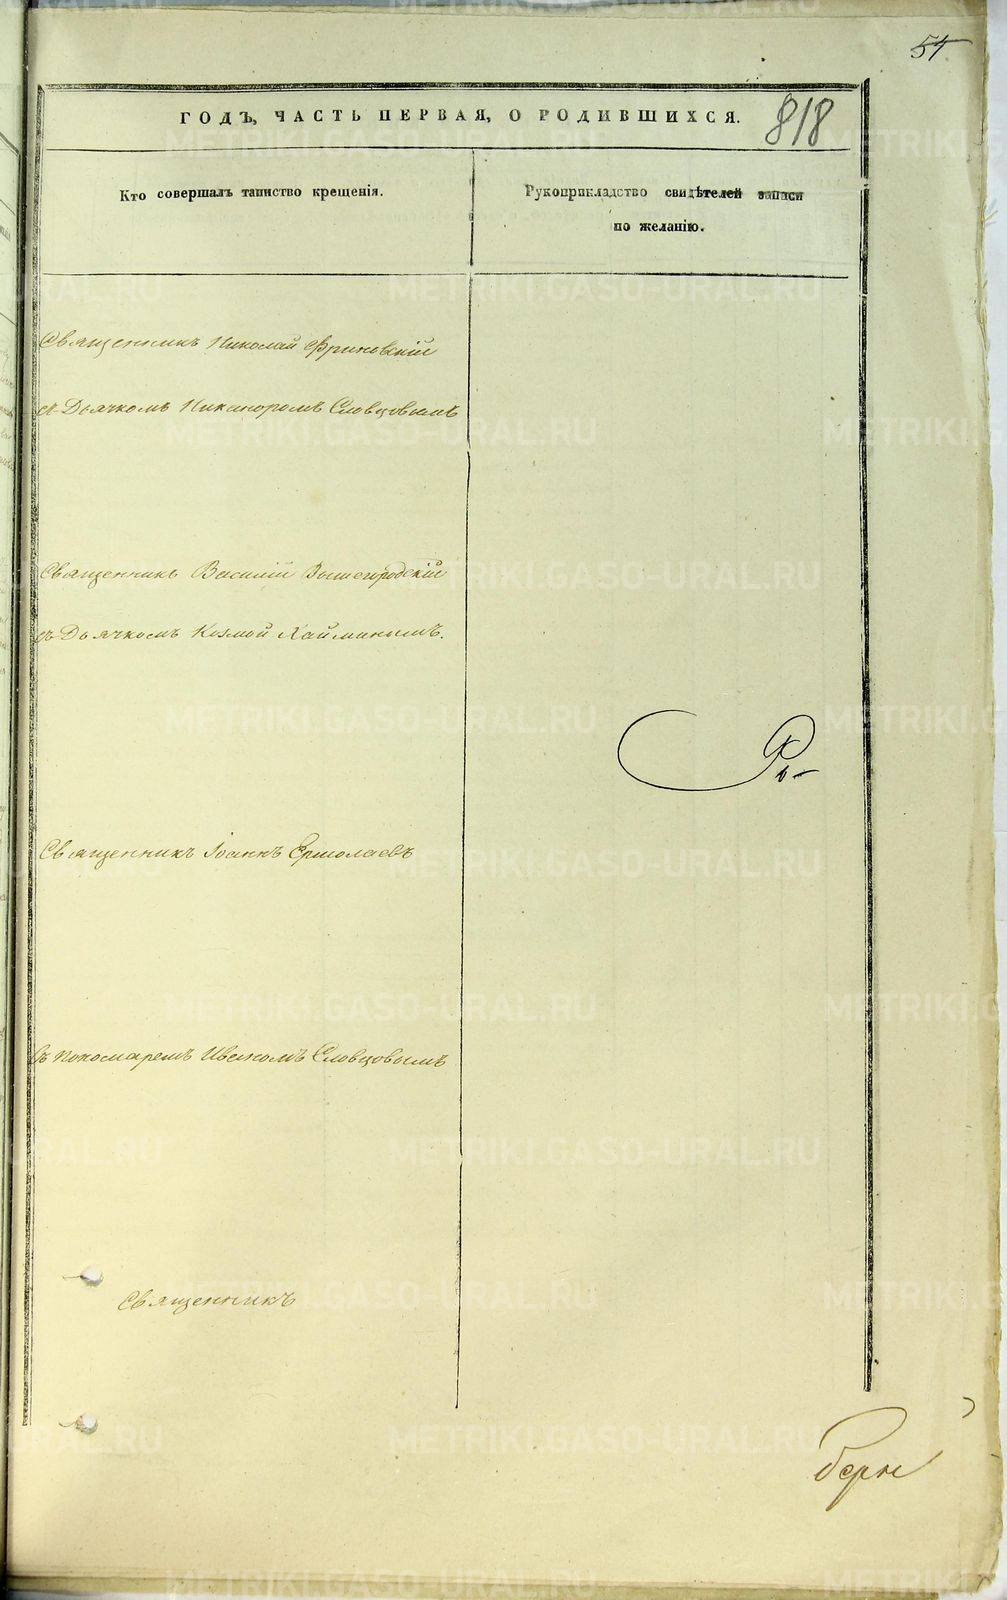 54
ГОДЪ, ЧАСТЬ ПЕРВАЯ, О РОДИВШИХСЯ.
818
Кто совершалъ таинство крещенія.
Рукоприкладство свидѣтелей записи
по желанію.
Священникъ Николай Фриновскій
съ Дьячкомъ Никаноромъ Словцовымъ
Священникъ Василій Вышегородскій
съ Дьячкомъ Козмой Хайминымъ.
Священникъ Іоаннъ Ермолаевъ
съ Пономаремъ Иваномъ Словцовымъ
Священникъ
METRIKI.GASO-URAL.RU